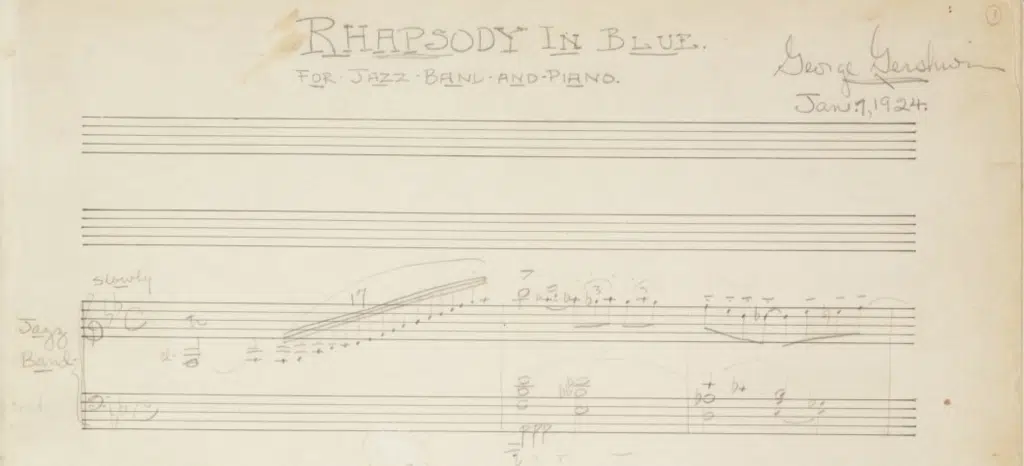 1
RHAPSODY IN BLUE.
FOR·JAZZ·BAND·AND·PIANO.
George Gershwin
Jan. 7, 1924.
slowly
17
3
Jazz
Band
ppp